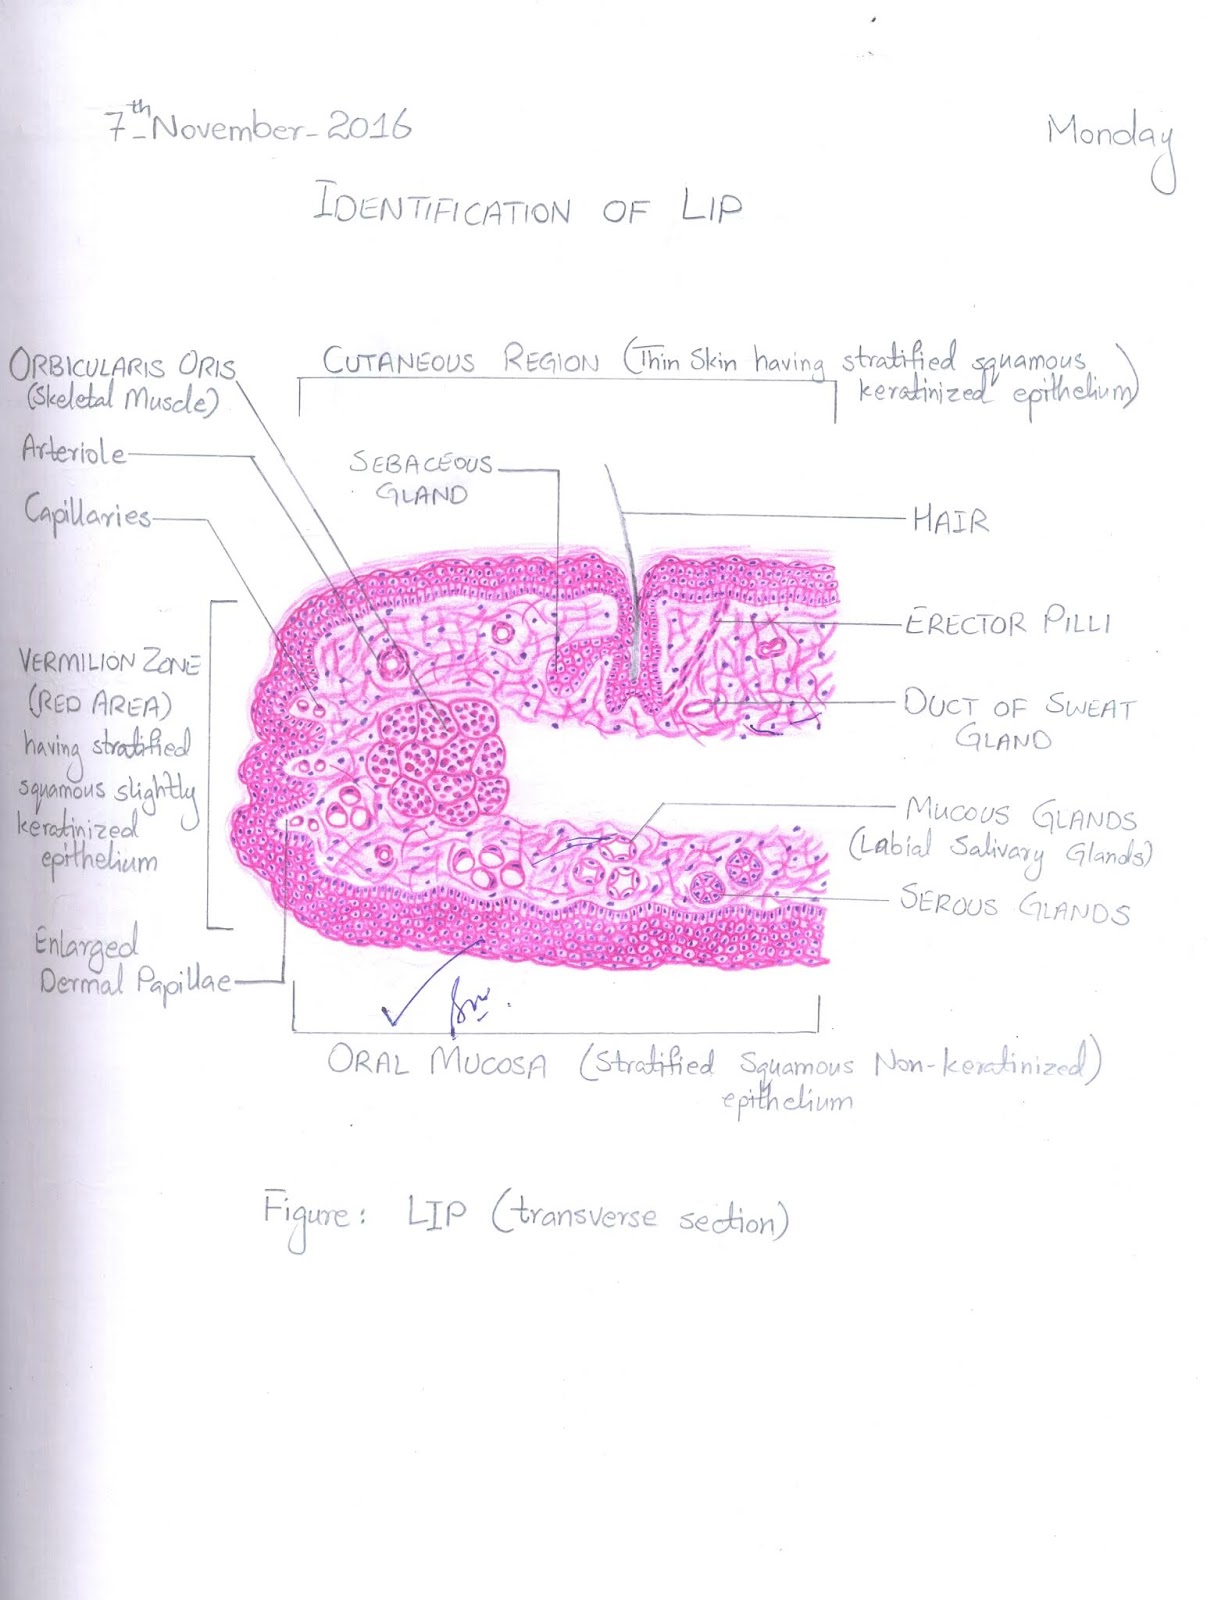 7th November-2016
Monday
IDENTIFICATION OF LIP
ORBICULARIS ORIS
(Skeletal Muscle)
CUTANEOUS REGION (Thin Skin having stratified squamous
keratinized epithelium)
Arteriole
SEBACEOUS
GLAND
Capillaries
HAIR
ERECTOR PILLI
VERMILION ZONE
(RED AREA)
having stratified
squamous slightly
keratinized
epithelium
DUCT OF SWEAT
GLAND
MUCOUS GLANDS
(Labial Salivary Glands)
SEROUS GLANDS
Enlarged
Dermal Papillae
ORAL MUCOSA (Stratified Squamous Non-keratinized)
epithelium
Figure: LIP (transverse section)